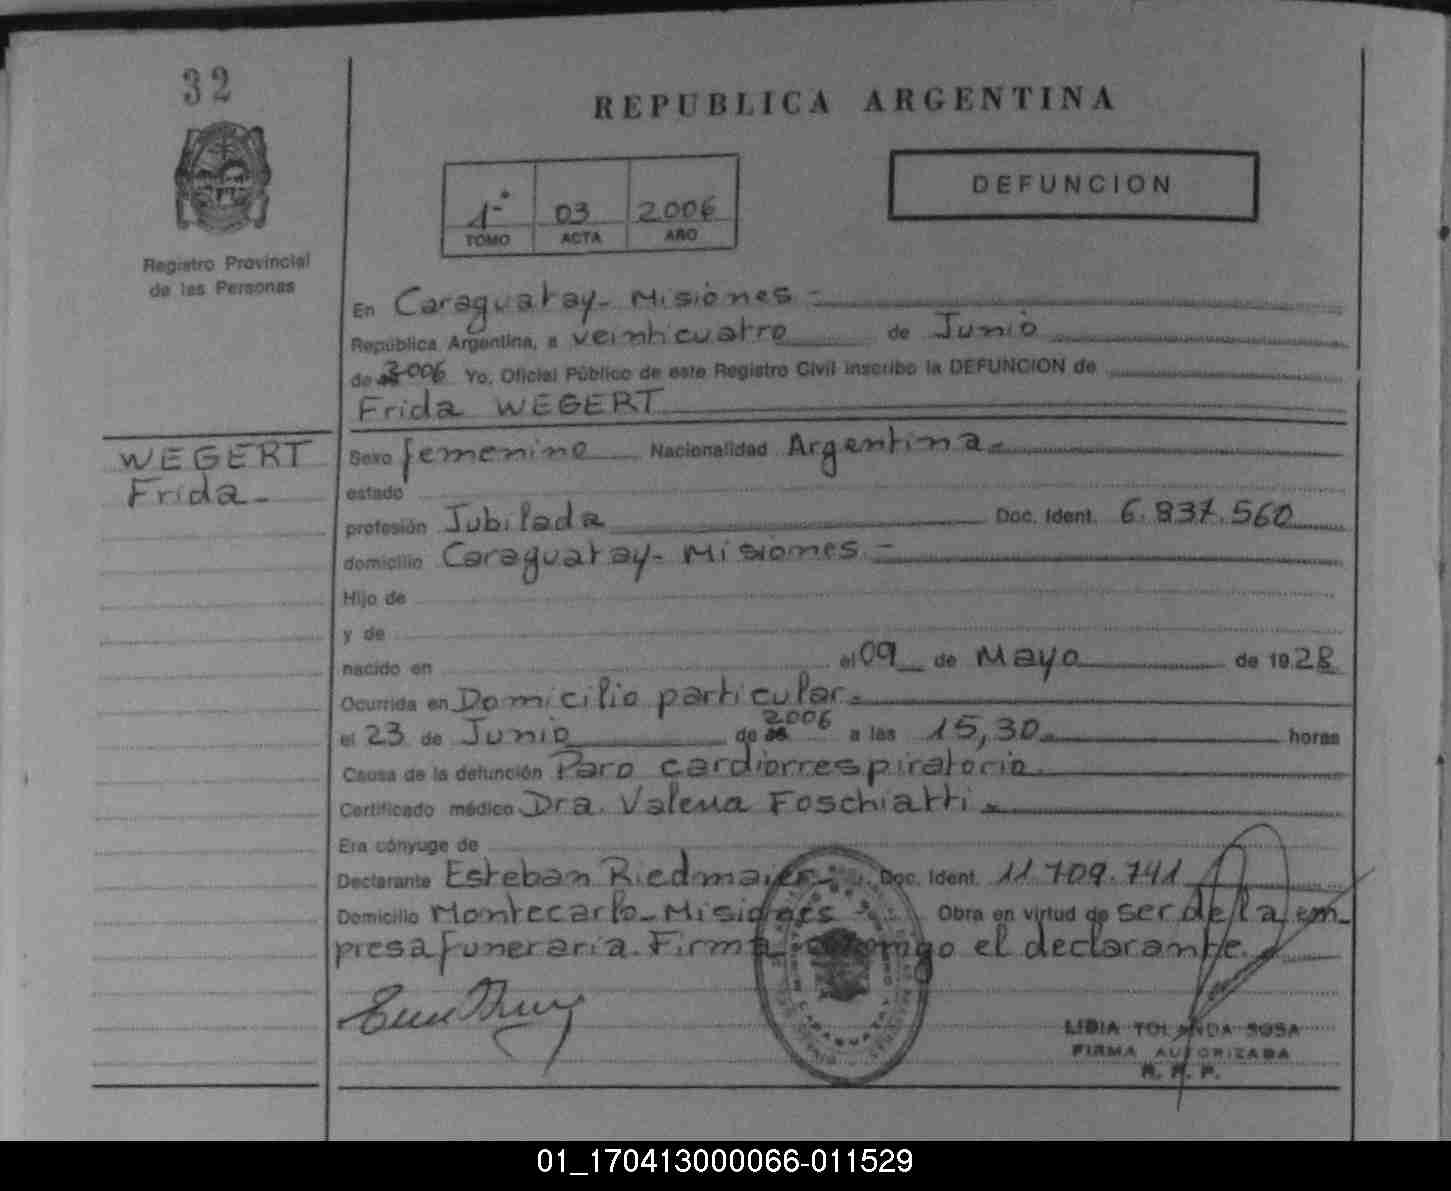 32
REPUBLICA ARGENTINA
DEFUNCION
1º 03 2006
TOMO ACTA AÑO
Registro Provincial
de las Personas
En Caraguatay - Misiones -
República Argentina, a veinticuatro de Junio
de 2006 Yo, Oficial Público de este Registro Civil inscribo la DEFUNCION de
Frida WEGERT
WEGERT
Frida -
Sexo femenino Nacionalidad Argentina -
estado
profesión Jubilada Doc. Ident. 6.837.560
domicilio Caraguatay - Misiones -
Hijo de
y de
nacido en el 09 de Mayo de 1928
Ocurrida en Domicilio particular -
el 23 de Junio de 2006 a las 15,30 - horas
Causa de la defunción Paro cardiorrespiratorio
Certificado médico Dra. Valeria Foschiatti -
Era cónyuge de
Declarante Esteban Riedmaier Doc. Ident. 11.709.741
Domicilio Montecarlo - Misiones - Obra en virtud de ser de la em-
presa funeraria. Firma conmigo el declarante. -
LIDIA YOLANDA SOSA
FIRMA AUTORIZADA
R. P. P.
01_170413000066-011529